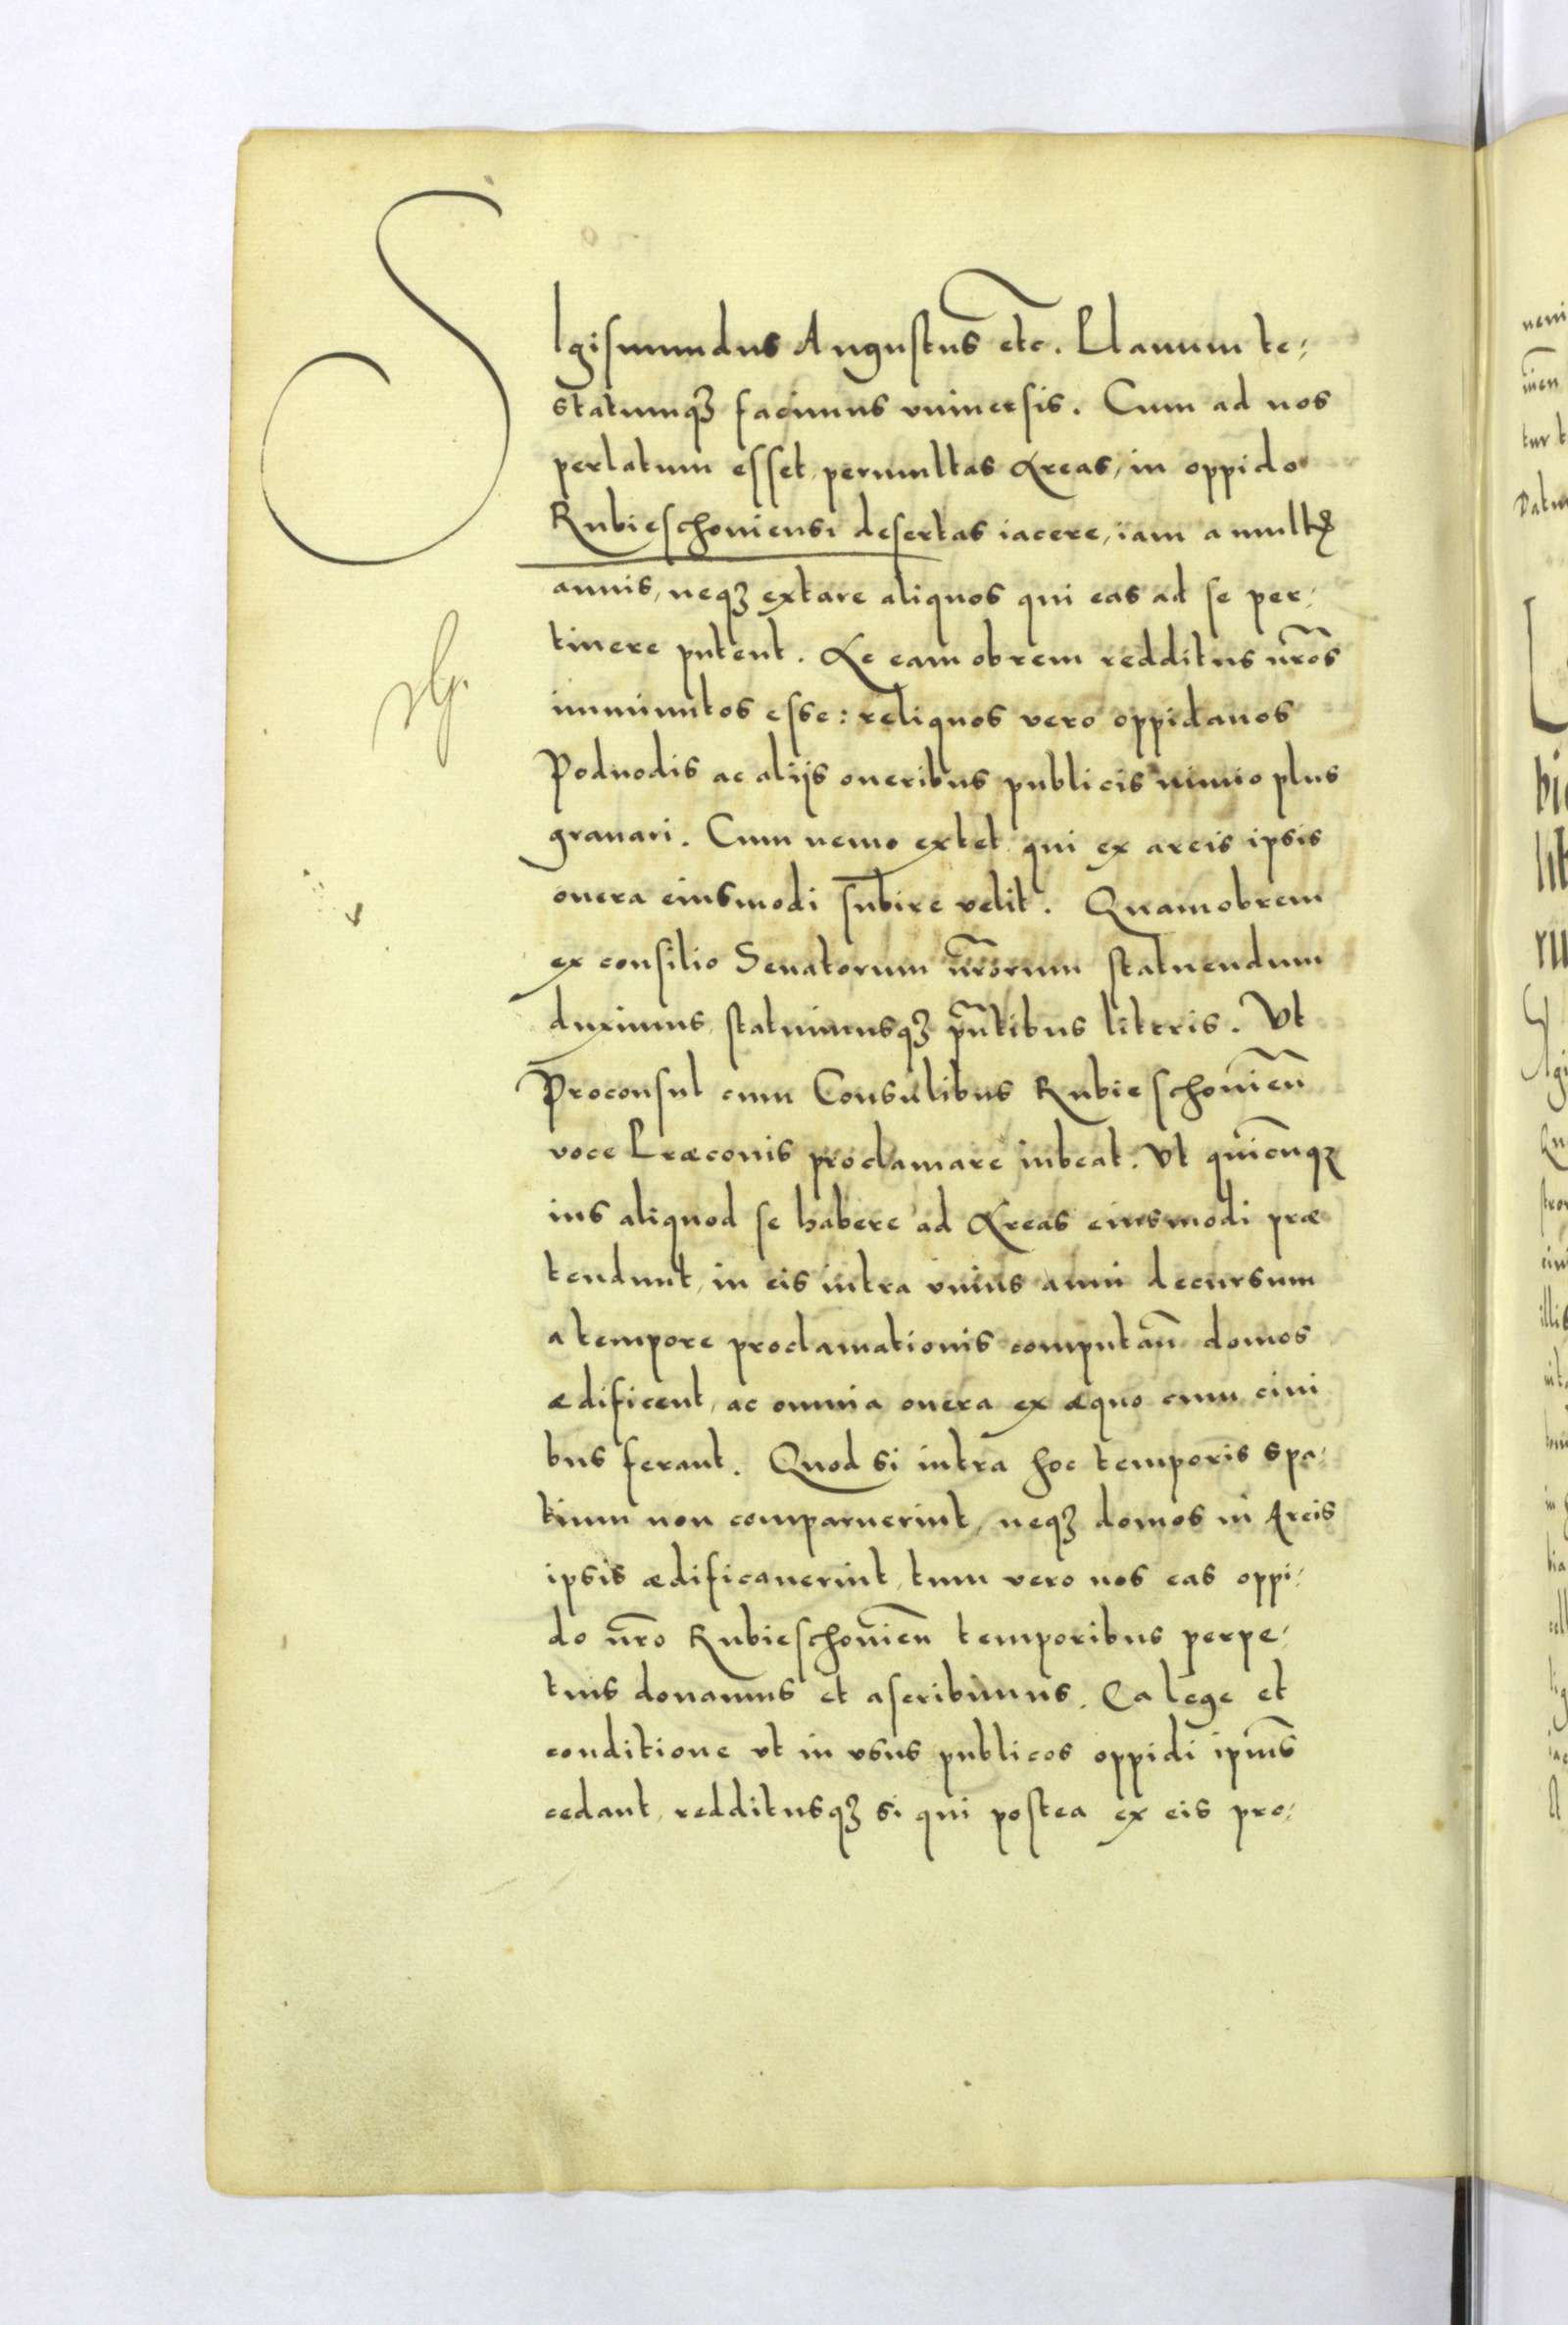 SIgismundus Augustus etc. Planum te¬
statumqꝫ facimus vniuersis. Cum ad nos
perlatum esset, permultas Areas, in oppido
Rubieschouiensi desertas iacere, iam a multꝭ
annis, neqꝫ extare aliquos qui eas ad se per¬
tinere putent. Ac eam ob rem redditus nr̃os
imminutos esse: reliquos vero oppidanos
Poduodis ac alijs oneribus publicis nimio plus
grauari. Cum nemo extet qui ex areis ipsis
onera eiusmodi subire velit. Quamobrem
ex consilio Senatorum nr̃orum statuendum
duximus, statuimusqꝫ pñtibus literis. Vt
Proconsul cum Consulibus Rubieschouieñ
voce Præconis proclamare iubeat. Vt quicunqꝫ
ius aliquod se habere ad Areas eiusmodi præ
tendunt, in eis intra vnius anni decursum
a tempore proclamationis computañ domos
ædificent, ac omnia onera ex æquo cum ciui
bus ferant. Quod si intra hoc temporis spa¬
tium non comparuerint, neqꝫ domos in Areis
ipsis ædificauerint, tum vero nos eas oppi¬
do nr̃o Rubieschouieñ temporibus perpe¬
tuis donamus et ascribimus. Ea lege et
conditione vt in vsus publicos oppidi ipius̃
cedant, redditusqꝫ si qui postea ex eis pro¬